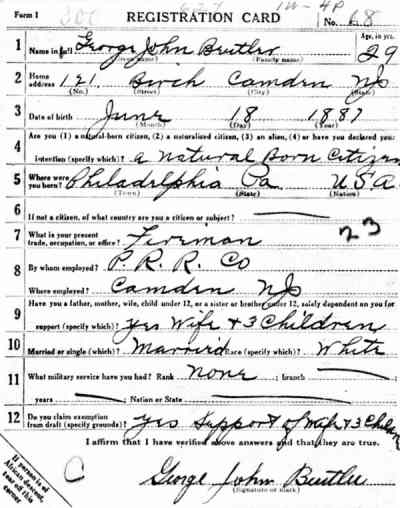 Form 1 REGISTRATION CARD No. 68
1 Name in full George John Buitler Age, in yrs. 29
(Given name) (Family name)
2 Home address 121 Birch Camden NJ
(No.) (Street) (City) (State)
3 Date of birth June 18 1887
(Month) (Day) (Year)
Are you (1) a natural-born citizen, (2) a naturalized citizen, (3) an alien, (4) or have you declared your
4
intention (specify which)? a Natural Born Citizen
5 Where were you born? Philadelphia Pa U S A
(Town) (State) (Nation)
6 If not a citizen, of what country are you a citizen or subject?
7 What is your present trade, occupation, or office? Fireman 23
8 By whom employed? P. R. R. Co
Where employed? Camden NJ
Have you a father, mother, wife, child under 12, or a sister or brother under 12, solely dependent on you for
9
support (specify which)? yes Wife + 3 Children
10 Married or single (which)? Married Race (specify which)? White
11 What military service have you had? Rank None ; branch
years ; Nation or State
12 Do you claim exemption from draft (specify grounds)? yes Support of Wife + 3 Children
I affirm that I have verified above answers and that they are true.
George John Buitler
(Signature or mark)
If person is of
African descent,
tear off this
corner